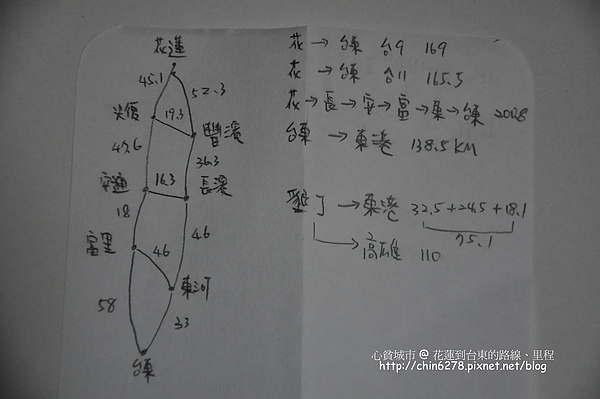 花蓮
45.1
52.3
光復
19.3
豐濱
47.6
36.3
安通
16.3
長濱
18
46
富里
46
東河
58
33
台東
花→台東 台9 169
花→台東 台11 165.5
花→長→安→富→東→台東 200.8
台東→東港 138.5KM
墾丁→東港 32.5+24.5+18.1
75.1
→高雄 110
心貧城市 @ 花蓮到台東的路線、里程
http://chin6278.pixnet.net/blog